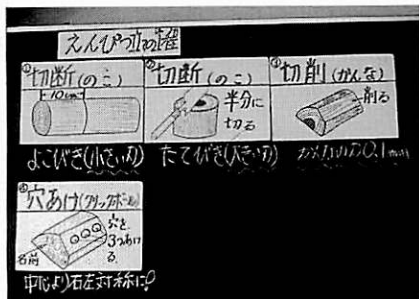 えんぴつ立の
①切断(のこ)
10cm
よこびき(小さい刃)
②切断(のこ)
半分に
切る
たてびき(大きい刃)
③切削(かんな)
削る
0.1mm
④穴あけ
穴を
3つあける
名前
中心より右左対称に